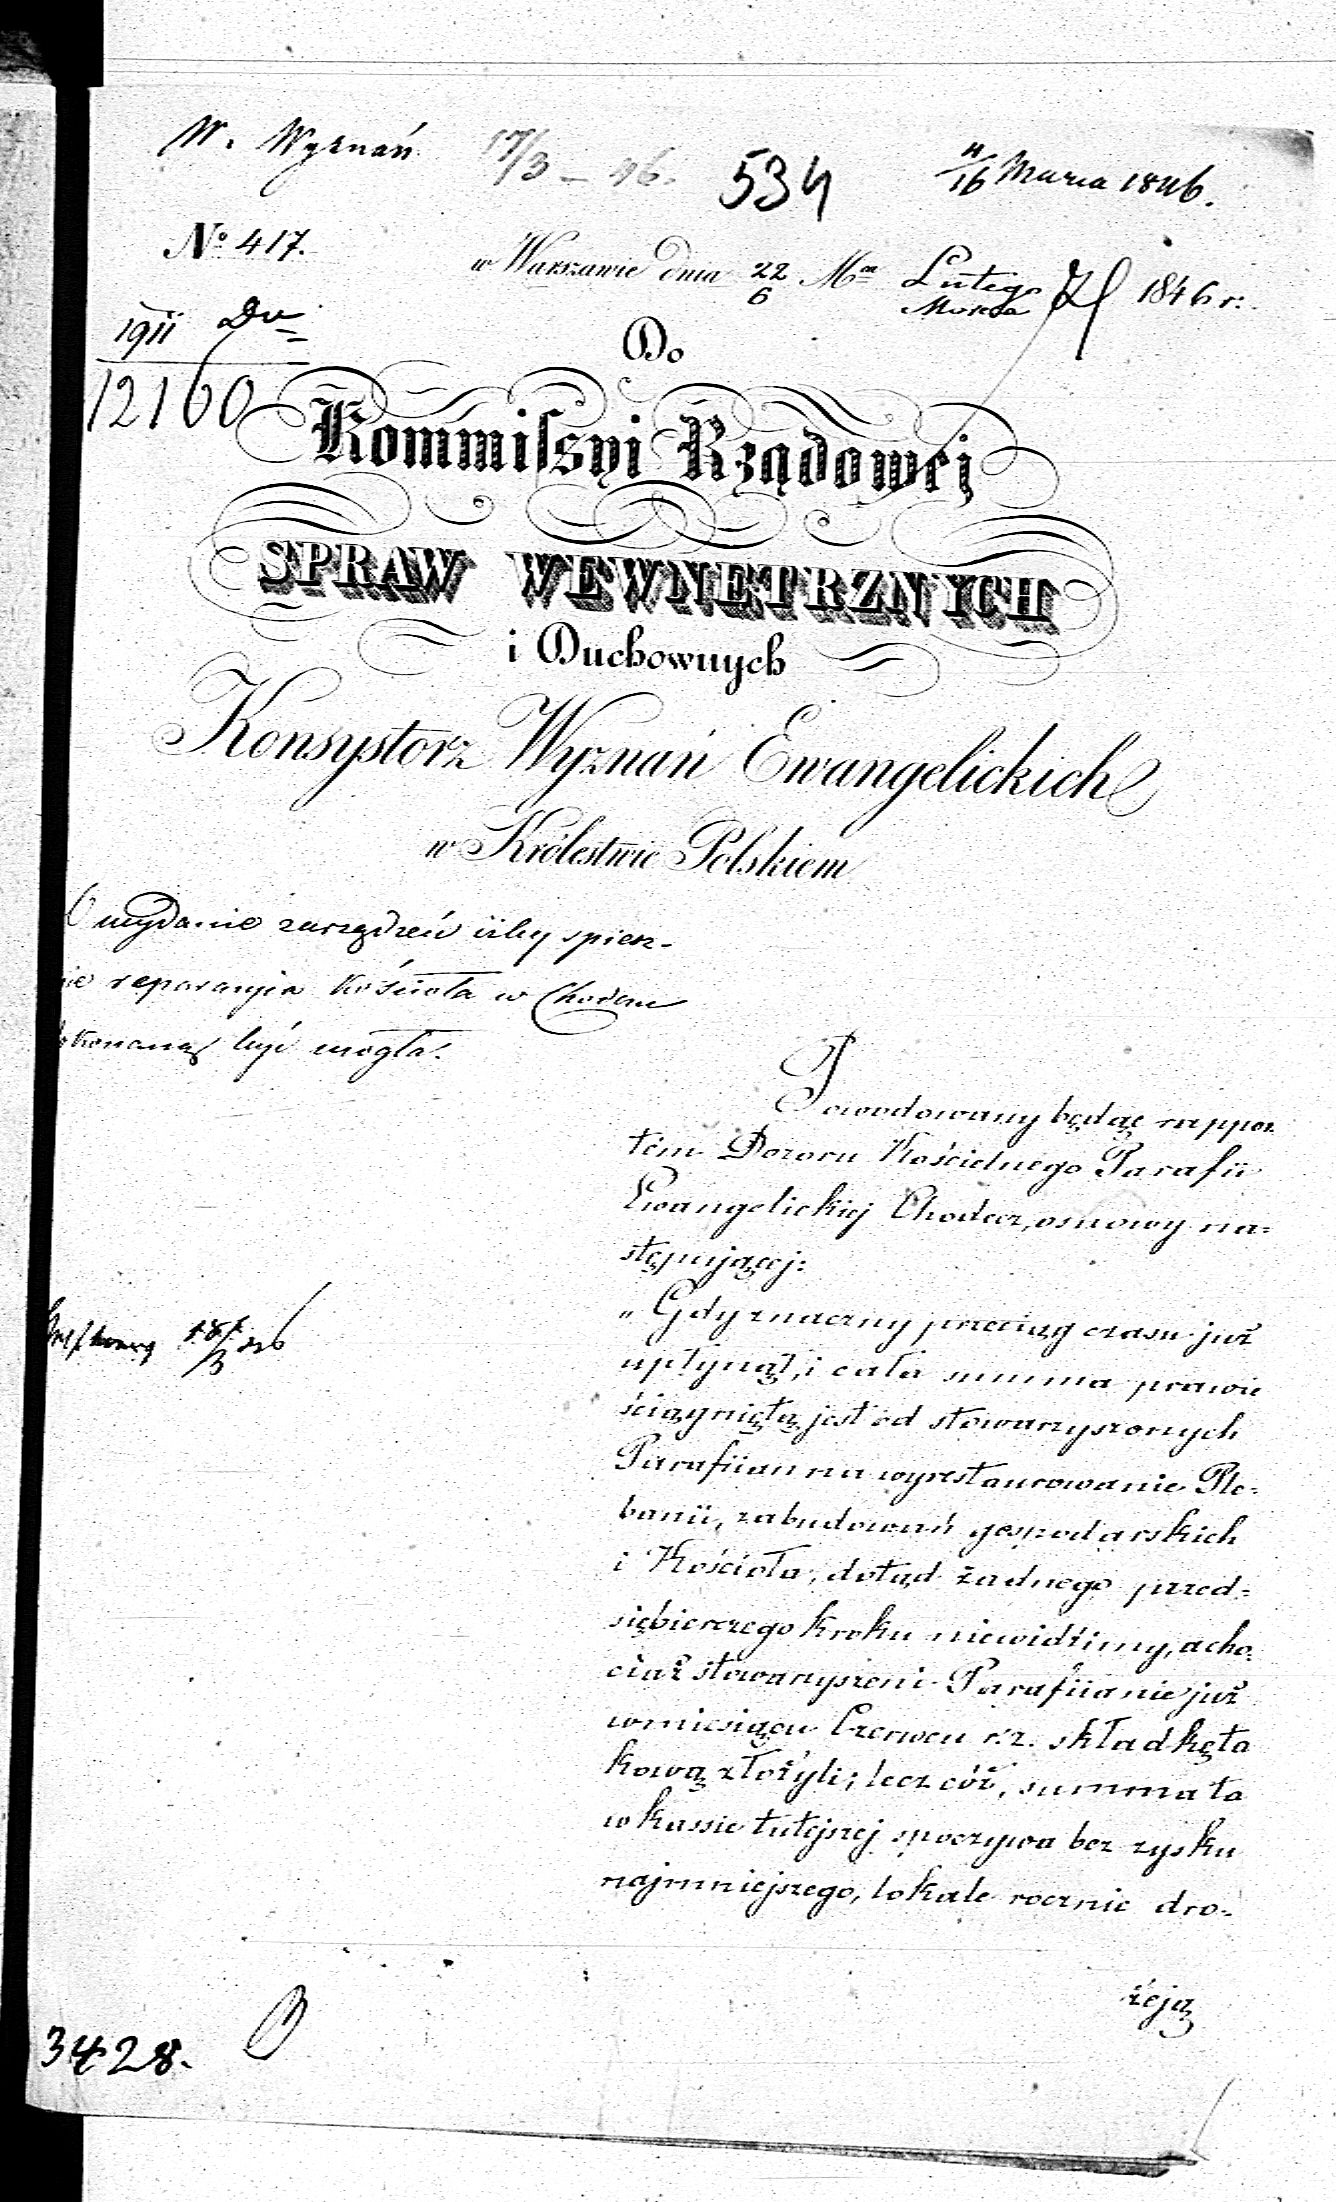 W. Wyznań 17/3 – 46. 534 4/16 Marca 1846.
No 417.
w Warszawie dnia 22/6 Mca Lutego/Marca 1846 r:
1911
12160
Do
Kommissyi Rządowej
SPRAW WEWNĘTRZNYCH
i Duchownych
Konsystorz Wyznań Ewangelickich
w Królestwie Polskiem
O wydanie zarządzeń iżby spiesz-
nie reparacyia Kościoła w Chodczu
dokonaną być mogła.
Powodowany będąc rappor
tem Dozoru Kościelnego Parafii
Ewangelickiej Chodecz, osnowy na=
stępującej:
„Gdy znaczny przeciąg czasu już
upłynął, i cała summa prawie
ściągniętą jest od stowarzyszonych
Parafiian na wyrestaurowanie Ple-
banii, zabudowań gospodarskich
i Kościoła, dotąd żadnego przed=
siębierczego kroku niewidzimy, acho
ciaż stowarzyszeni Parafiianie już
wmiesiącu Czerwcu r.z. składkę ta
kową złożyli; lecz cóż, summa ta
w kassie tutejszej spoczywa bez zysku
najmniejszego, lokale rocznie dro-
żeją
18/3 846
3428.